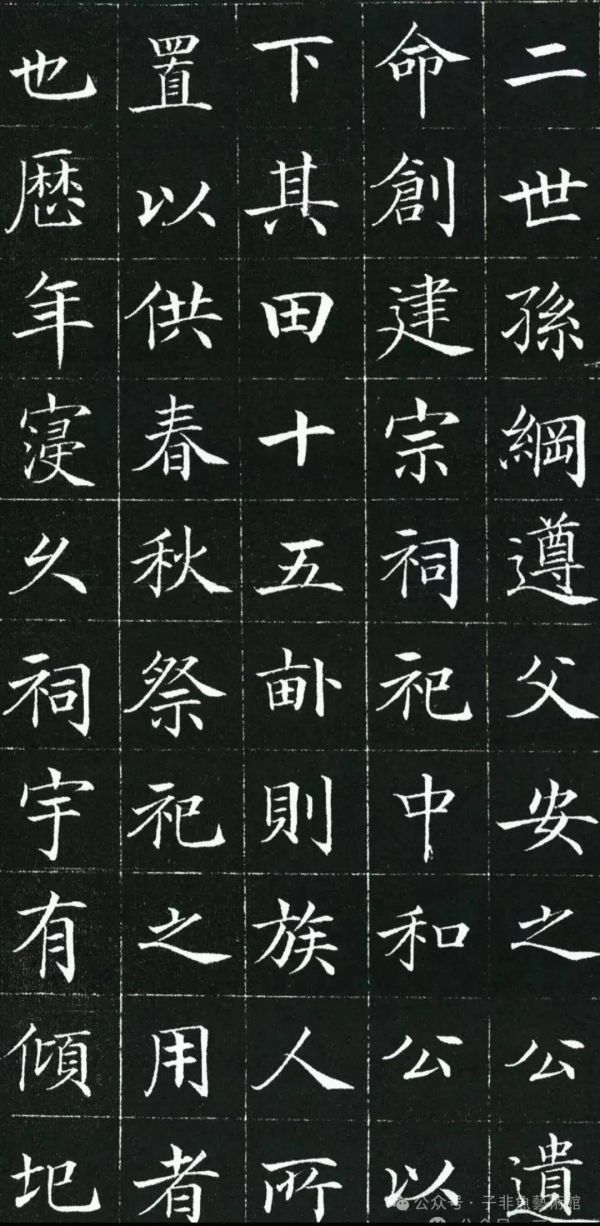 二世孫綱遵父安之公遺
命創建宗祠祀中和公以
下其田十五畝則族人所
置以供春秋祭祀之用者
也歷年寖久祠宇有傾圮
公众号·子非鱼藝術館